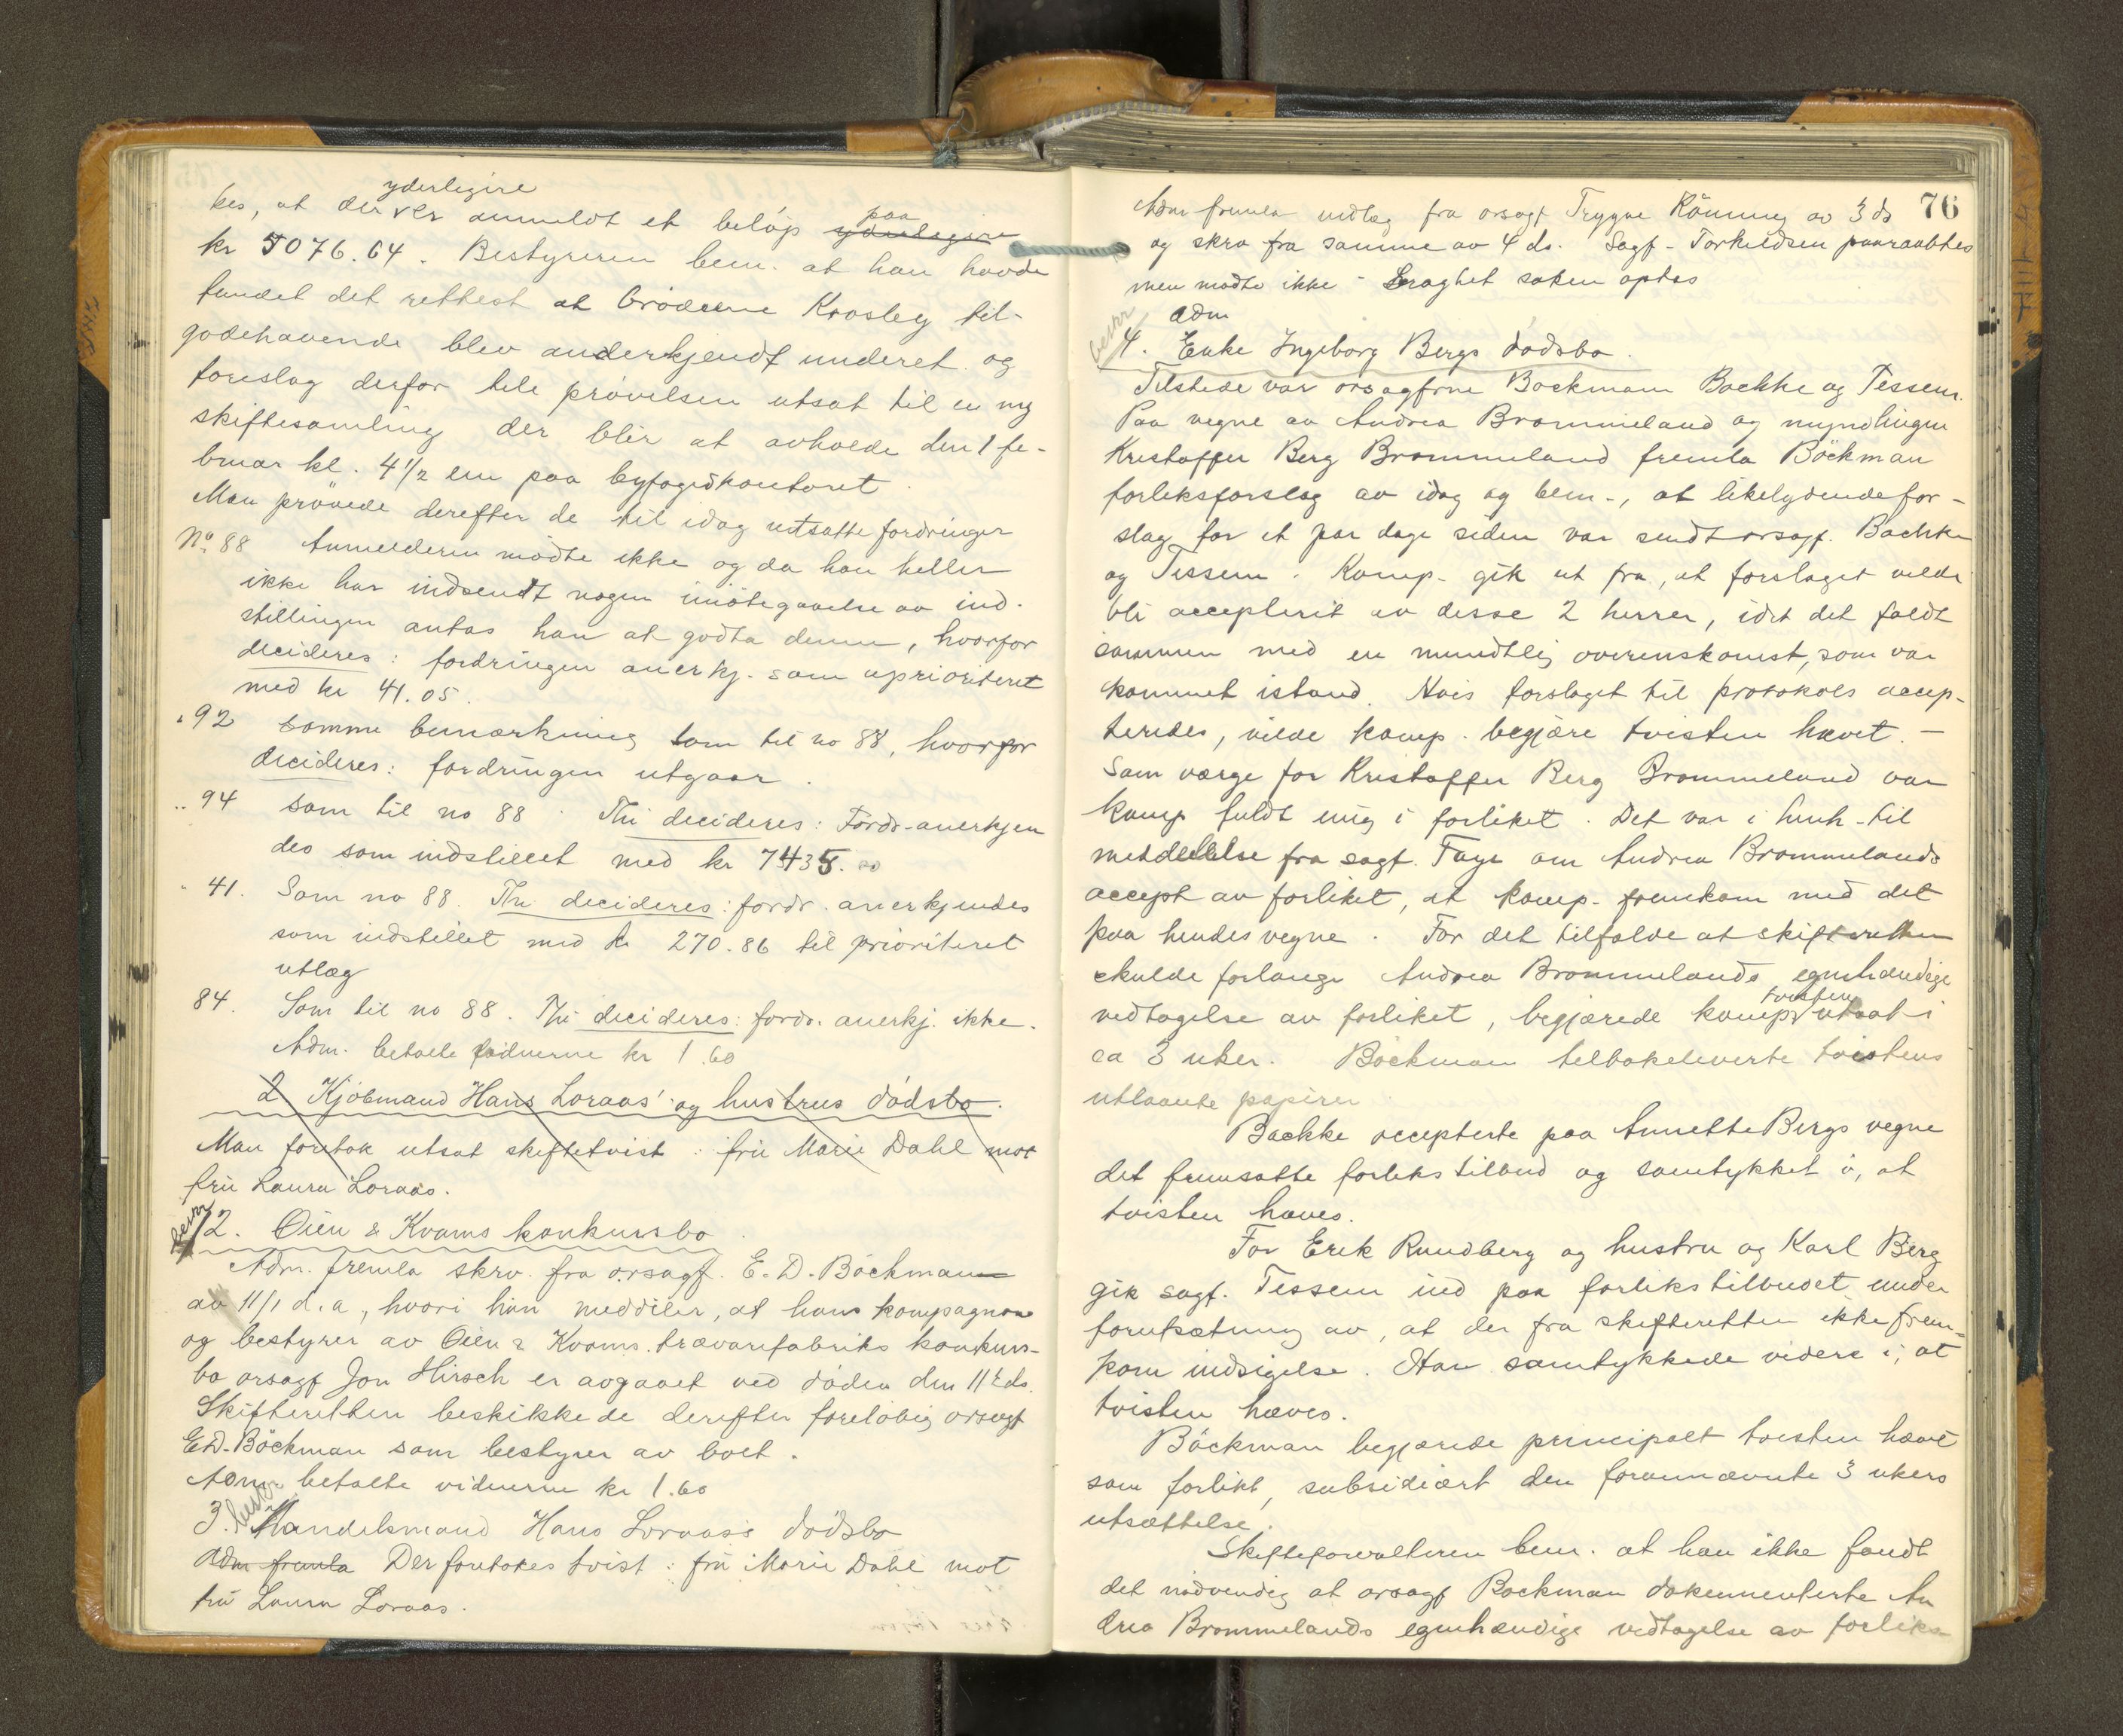 yderligere
kes, at der er anmeldt et beløp paa yderligere
kr 5076.64. Bestyreren bem. at han havde
fundet det rettest at brødrene Krosby til-
godehavende blev anderkjendt underet og
foreslog derfor hele prøvelsen utsat til en ny
skiftesamling der blir at avholde den 1 fe-
bruar kl. 4 1/2 em paa byfogedkontoret.
Man prøvede derefter de til idag utsatte fordringer
No 88 Anmelderen mødte ikke og da han heller
ikke har indsendt nogen imøtegaaelse av ind-
stillingen antas han at godta denne, hvorfor
decideres: fordringen anerkj. som uprioriteret
med kr 41.05.
" 92 samme bemærkning som til no 88, hvorfor
decideres: fordringen utgaar.
" 94 som til no 88. Thi decideres: Fordr. anerkjen
des som indstillet med kr 7435.00
" 41. Som no 88. Thi decideres: fordr. anerkjendes
som indstillet med kr 270.86 til prioriteret
utlæg
84. Som til no 88. Thi decideres: fordr. anerkj. ikke.
Adm. betalte vidnerne kr 1.60
2 Kjøbmand Hans Loraas' og hustrus dødsbo.
Man foretok utsat skiftetvist: fru Marie Dahl mot
fru Laura Loraas.
beskr
2. Øien & Kvams konkursbo.
Adm. fremla skrv. fra orsagf. E. D. Bøckman
av 11/1 d.a, hvori han meddeler, at hans kompagnon
og bestyrer av Øien & Kvams trævarefabriks konkurs-
bo orsagf Jon Hirsch er avgaaet ved døden den 11 ds.
Skifteretten beskikkede derefter foreløbig orsagf
E.D. Böckman som bestyrer av boet.
Adm betalte vidnerne kr 1.60
beskr
3. Handelsmand Hans Loraas's dødsbo
Adm fremla Der foretokes tvist: fru Marie Dahl mot
fru Laura Loraas.
76
Adm fremla indlæg fra orsagf Trygve Rönning av 3 ds
og skrv fra samme av 4 ds. Sagf. Torkildsen paaraabtes
men mødte ikke - saken optas
Adm
beskr
4. Enke Ingeborg Bergs dødsbo.
Tilstede var orsagfrne Bøckmann Bachke og Tessem.
Paa vegne av Andrea Brommeland og myndlingen
Kristoffer Berg Brommeland fremla Böckman
forliksforslag av idag og bem-, at likelydende for-
slag for et par dage siden var sendt orsagf. Bachke
og Tessem. Komp. gik ut fra, at forslaget vilde
bli accepteret av disse 2 herrer, idet det faldt
sammen med en mundtlig overenskomst, som var
kommet istand. Hvis forslaget til protokols accep-
teredes, vilde komp. begjære tvisten hævet. -
Som værge for Kristoffer Berg Brommeland var
komp fuldt enig i forliket. Det var i henh. til
meddelelse fra sagf. Faye om Andrea Brommelands
accept av forliket, at komp. fremkom med det
paa hendes vegne. For det tilfælde at skifteretten
skulde forlange Andrea Brommelands egenhændige
vedtagelse av forliket, begjærede komp tvisten utsat i
ca 3 uker. Böckman tilbakeleverte tvistens
utlaante papirer
Bachke accepterte paa Annette Bergs vegne
det fremsatte forlikstilbud og samtykket i, at
tvisten hæves.
For Erik Rundberg og hustru og Karl Berg
gik sagf. Tessem ind paa forlikstilbudet under
forutsætning av, at der fra skifteretten ikke frem-
kom indsigelse. Han samtykkede videre i, at
tvisten hæves.
Böckman begjærede principalt tvisten hævet
som forlikt, subsidiært den forannævnte 3 ukers
utsættelse.
Skifteforvalteren bem. at han ikke fandt
det nødvendig at orsagf Bøckman dokumenterte An
drea Brommelands egenhændige vedtagelse av forliks